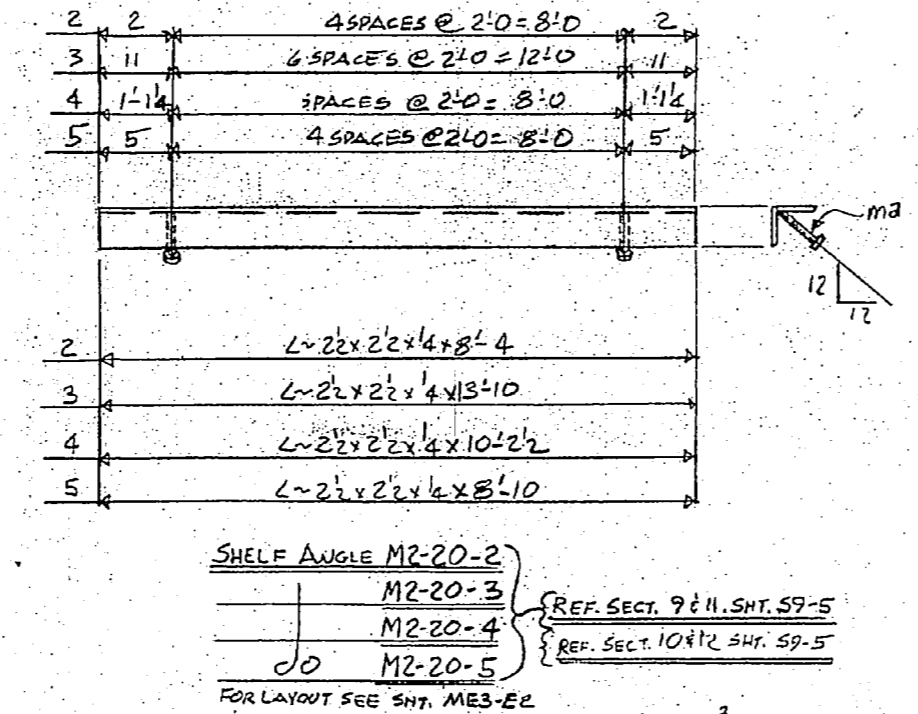 2 2 4 SPACES @ 2'-0 = 8'-0 2
3 11 6 SPACES @ 2'-0 = 12'-0 11
4 1'-1 1/4 SPACES @ 2'-0 = 8'-0 1'-1 1/4
5 5 4 SPACES @ 2'-0 = 8'-0 5
m2
12
12
2 L~2 1/2 x 2 1/2 x 1/4 x 8'-4
3 L~2 1/2 x 2 1/2 x 1/4 x 13'-10
4 L~2 1/2 x 2 1/2 x 1/4 x 10'-2 1/2
5 L~2 1/2 x 2 1/2 x 1/4 x 8'-10
SHELF ANGLE M2-20-2
M2-20-3
M2-20-4
do M2-20-5
REF. SECT. 9 & 11. SHT. S9-5
REF. SECT. 10 & 12 SHT. S9-5
FOR LAYOUT SEE SHT. ME3-E2